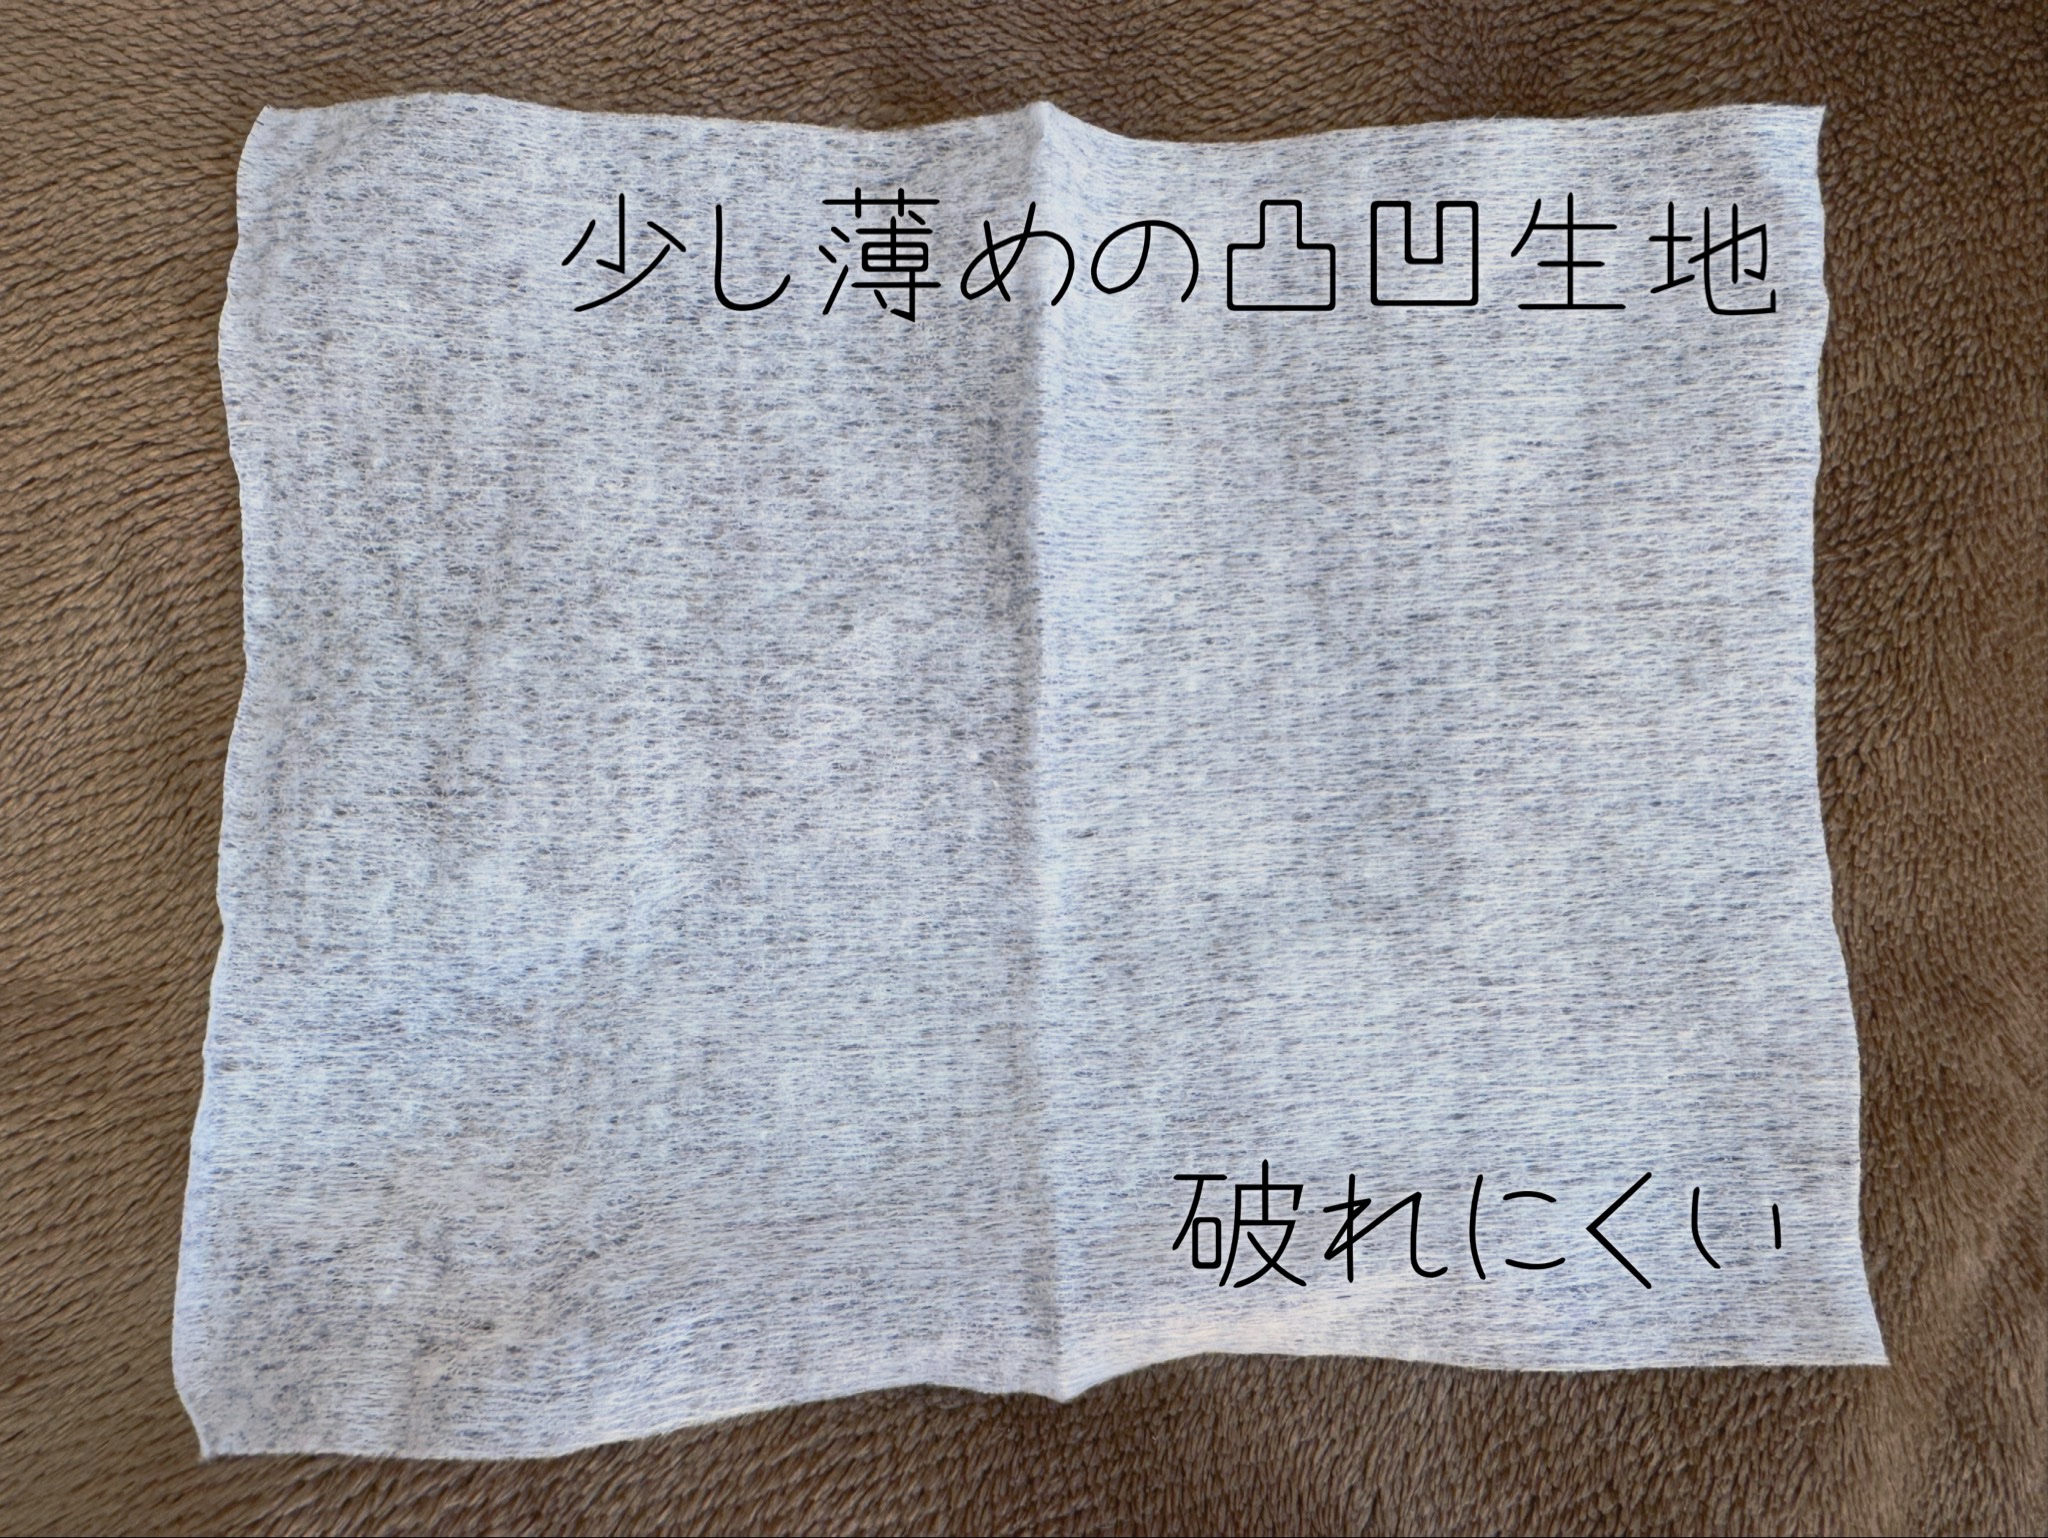 少し薄めの凸凹生地
破れにくい